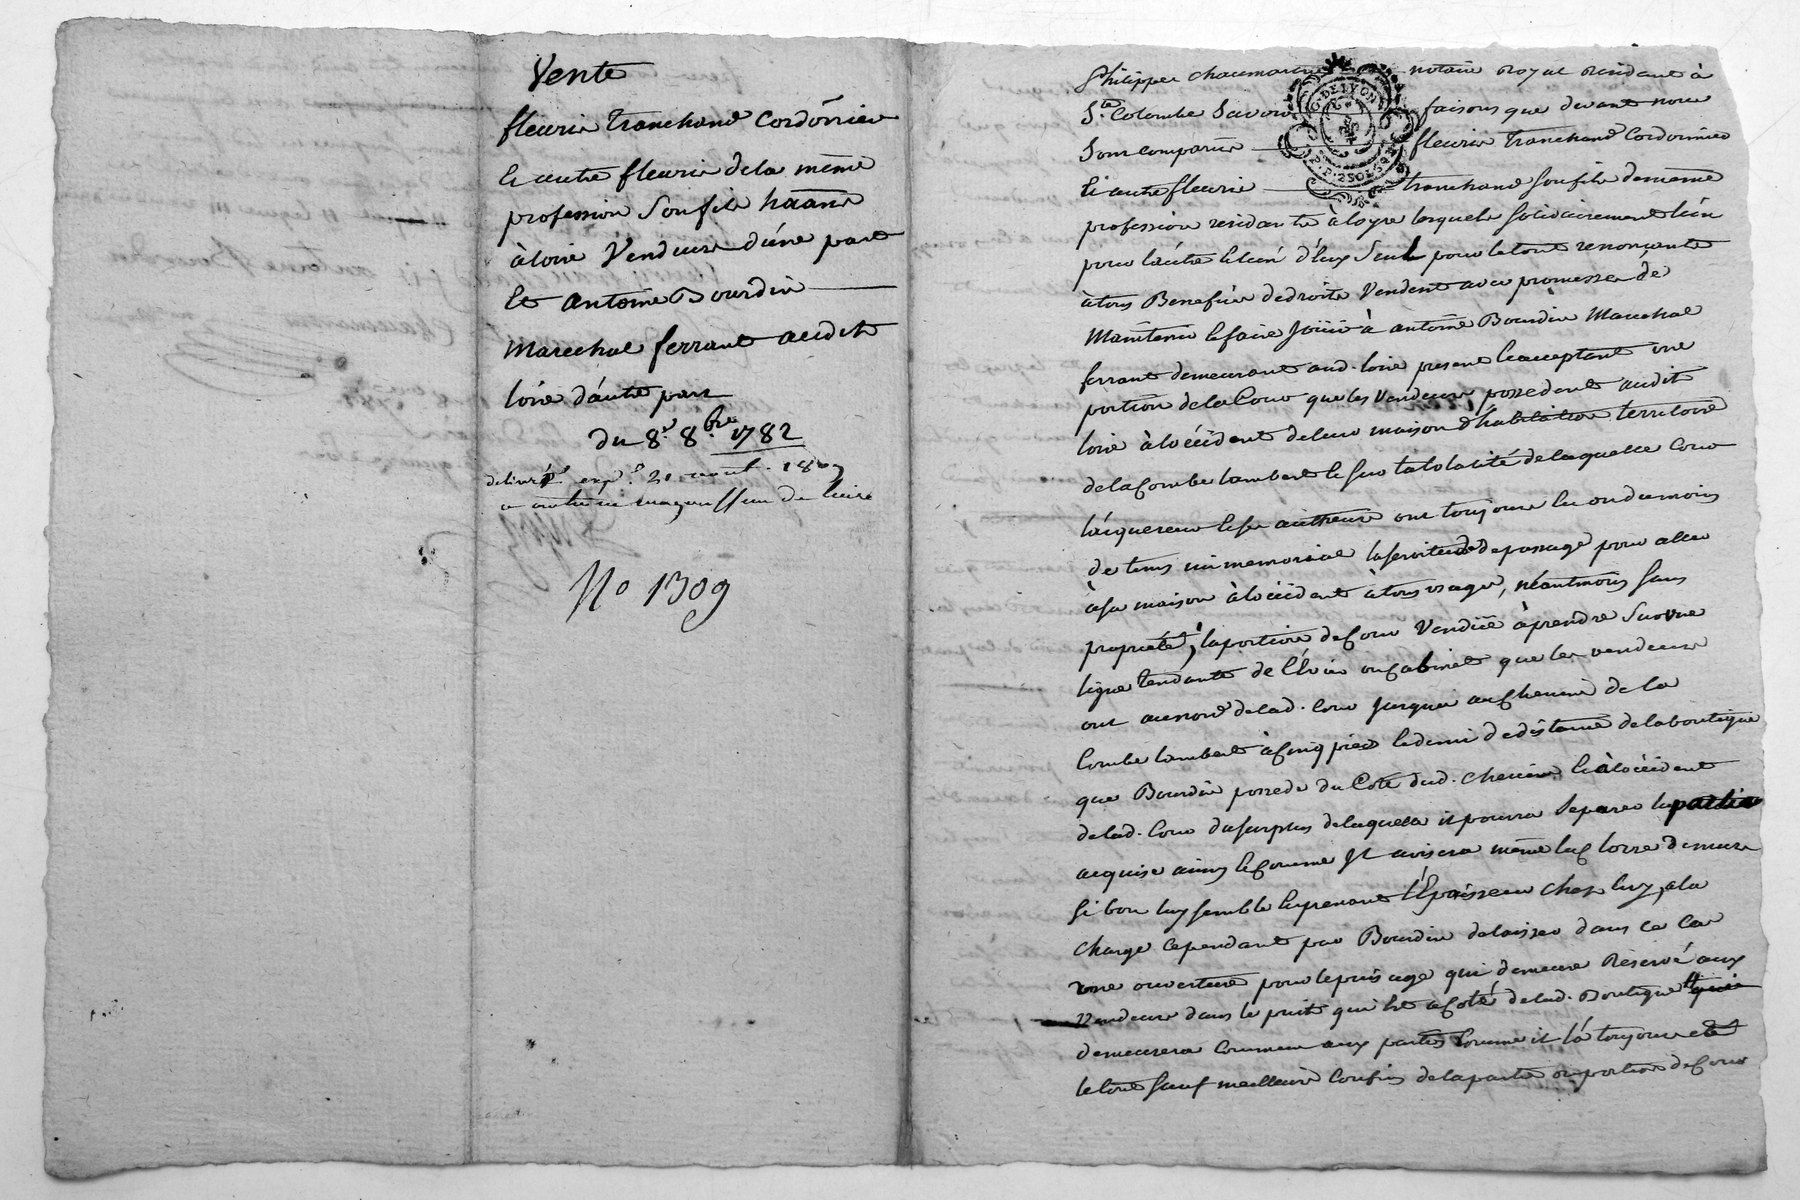 Vente
fleurie tranchand Cordonnier
et autre fleurie de la même
profession son fils
à loire Vendeurs d'une part
Et antoine Bourdin
Marechal ferrant audit
loire d'autre part
du 8.e 8.bre 1782
delivré exp.on 21 aout
No 1309
Philippe chaumartin notaire Royal Residant à
S.te Colombe Savoir faisons que devant nous
Sont comparus fleurie tranchand Cordonnier
et autre fleurie tranchand son fils de meme
profession residants à loyre lesquels solidairement lun
pour lautre et lun d'eux Seul pour le tout renonçants
à tous Benefices de droits Vendent avec promesse de
Maintenir et faire Jouir à antoine Bourdin Marechal
ferrant demeurant aud. loire present et acceptant une
portion de la Cour que les Vendeurs possedent audit
loire à locçident de leur maison d'habitation territoire
de la Combe lambert et sur la totalité de laquelle Cour
lacquereur et ses autheurs ont toujours eu ou du moins
de tems immemorial la servitude de passage pour aller
à sa maison à locçident à tous usages, néantmoins sans
propriété, la portion de Cour Vendüe à prendre Sur une
ligne tendante de l'Evier ou Cabinet que les vendeurs
ont au nord de lad. Cour jusques au Chemin de la
Combe lambert à Cinq pieds et demi de distance de la boutique
que Bourdin possede du Coté dud. Chemin et à locçident
de lad. Cour du surplus de laquelle il pourra Separer la partie
acquise ainsy et Comme Il avisera même la Clorre de murs
Si bon luy semble en prenant l'Epaisseur chez luy, a la
charge cependant par Bourdin de laisser dans ce Cas
une ouverture pour le puisage qui demeure Reservé aux
Vendeurs dans le puits qui est a Coté de lad. Boutique
demeurera Commun aux parties Comme il l'a toujours eté
le tout sauf meilleurs Confins de la partie ou portion de Cour
C. DE LYON
P.P. 2 SOLS